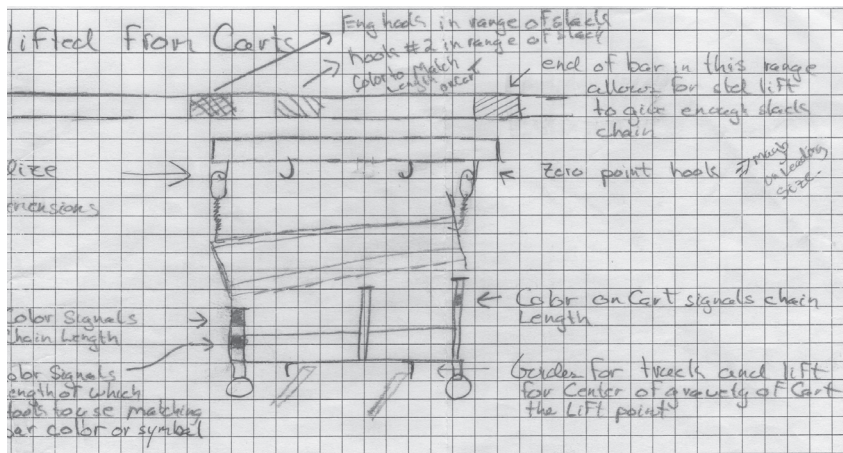 lifted from Carts
Eng hods in range of slacks
hook #2 in range of slack
Color to match
Length on cart
end of bar in this range
allows for std lift
to give enough slack
chain
lize
Zero point hook
on leading
size.
mensions
Color on Cart signals chain
Length
Color Signals
Chain Length
olor Signals
ength of which
to use matching
bar color or symbol
Guides for track and lift
for Center of gravety of Cart
the Lift point